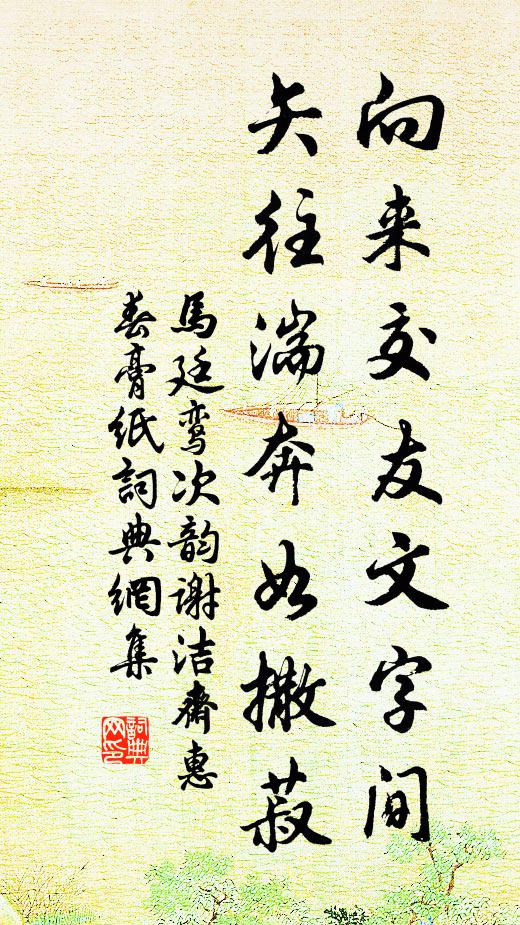 向来交友文字间
矢往湍奔如撒菽
馬廷鸾次韵谢洁齋惠
春膏纸詞典網集
詞典
网印